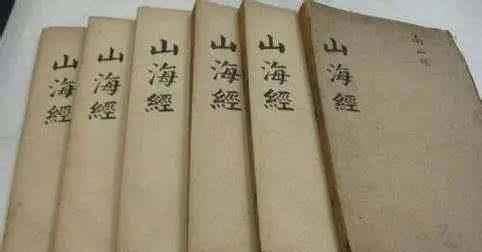 山海經
山海經
山海經
山海經
山海經
山海經